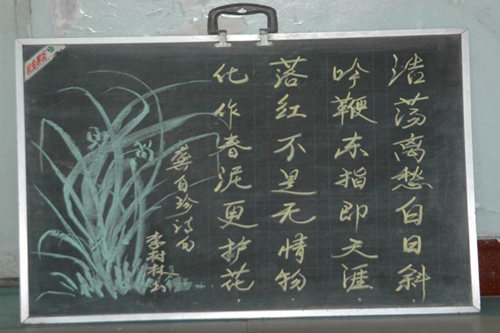 浩荡离愁白日斜
吟鞭东指即天涯
落红不是无情物
化作春泥更护花
龚自珍诗句